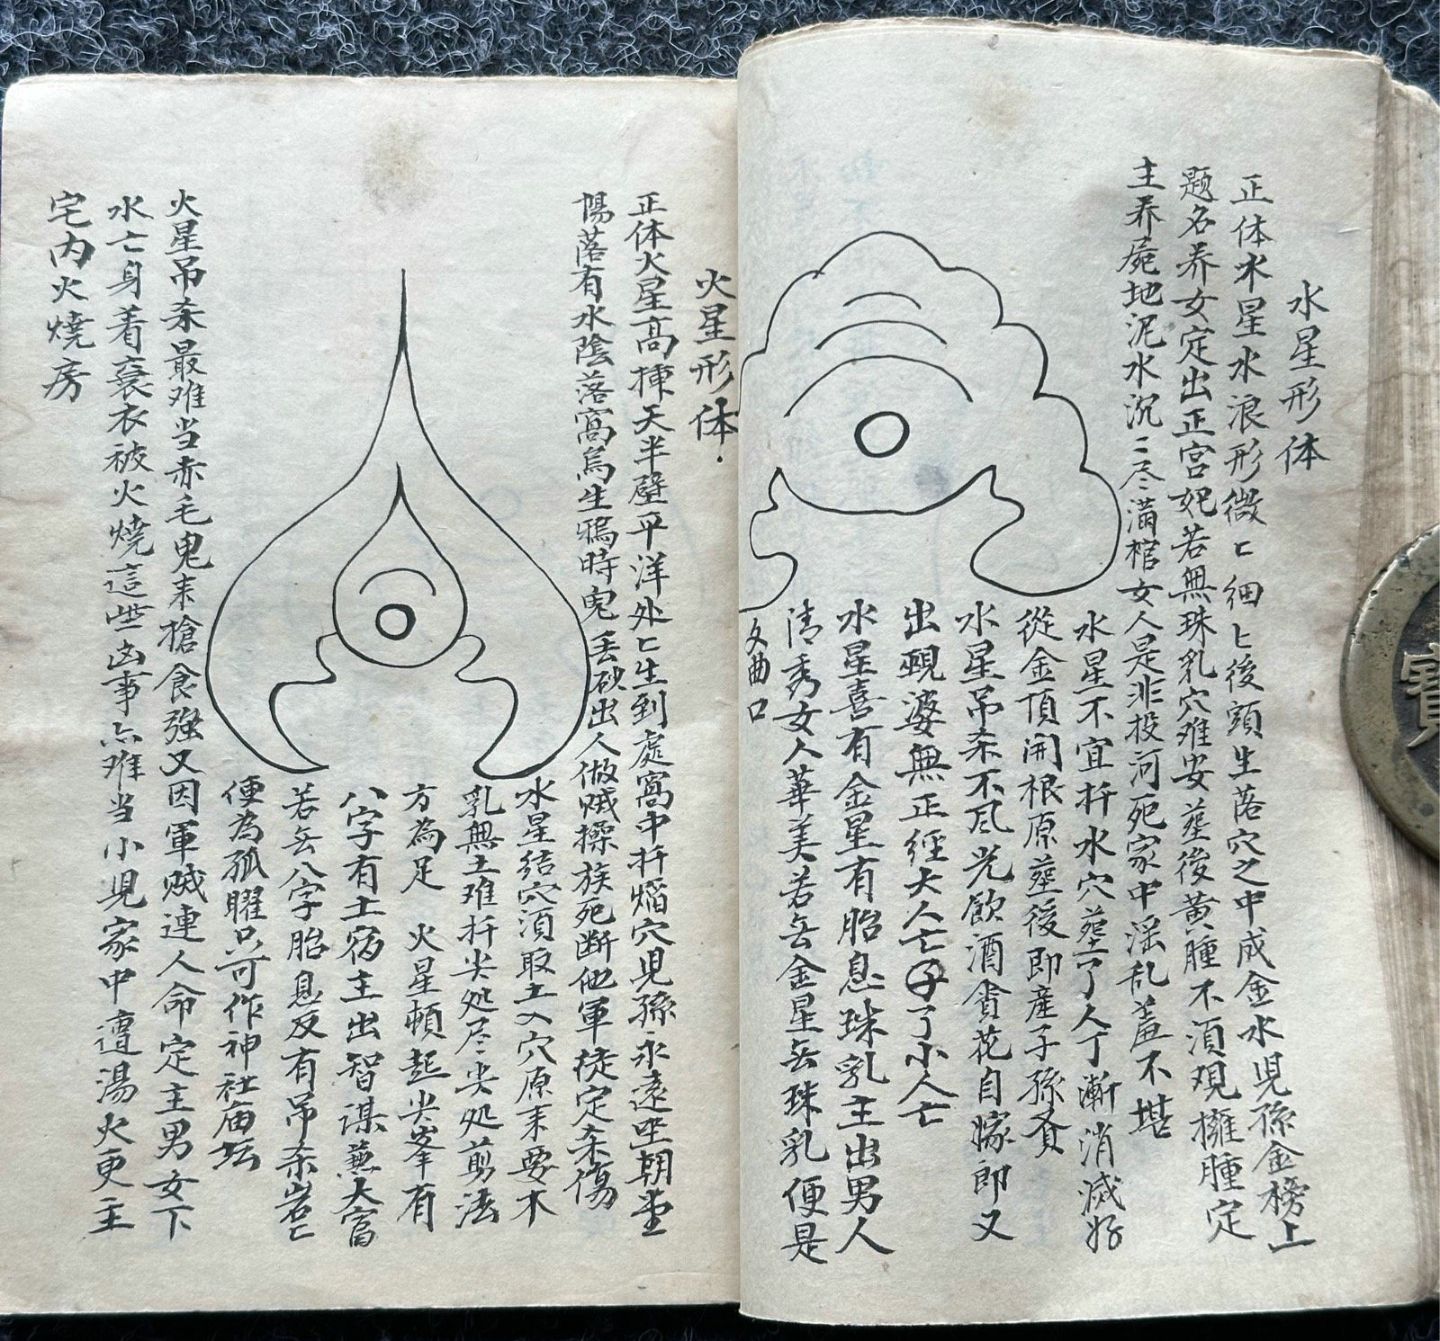 水星形体
正体水星水浪形微匕細匕後頭生落穴之中成金水児孫金榜上
题名养女定出正宮妃若無珠乳穴难安塟後黄腫不須覌擁腫定
主养屍地泥水沉二尽满棺女人是非投河死家中淫乱羞不堪
水星不宜扦水穴塟了人丁漸消滅好
從金頂開根原塟後即産子孫貴
水星吊杀不尽光飲酒貪花自嫁即又
出覡婆無正經大人亡子了小人亡
水星喜有金星有胎息珠乳主出男人
清秀女人華美若無金星無珠乳便是
文曲口
火星形体
正体火星高揀天半壁平洋处匕生到處窩中扦熖穴児孫永遠坐朝堂
陽落有水陰落窩烏生鴉時鬼丢砍出人做贼操族死断他軍徒定杀傷
水星结穴須取土入穴原来要木
乳無土难扦尖处尽尖处剪法
方為足 火星頓起尖峯有
八字有土宿主出智謀蕙大富
若無八字胎息及有吊杀岩匕
便為孤曜只可作神社庙坛
火星吊杀最难当赤毛鬼来搶食强又因軍贼連人命定主男女下
水亡身着衰衣被火燒這些凶事亦难当小児家中遭湯火更主
宅内火燒房
寶